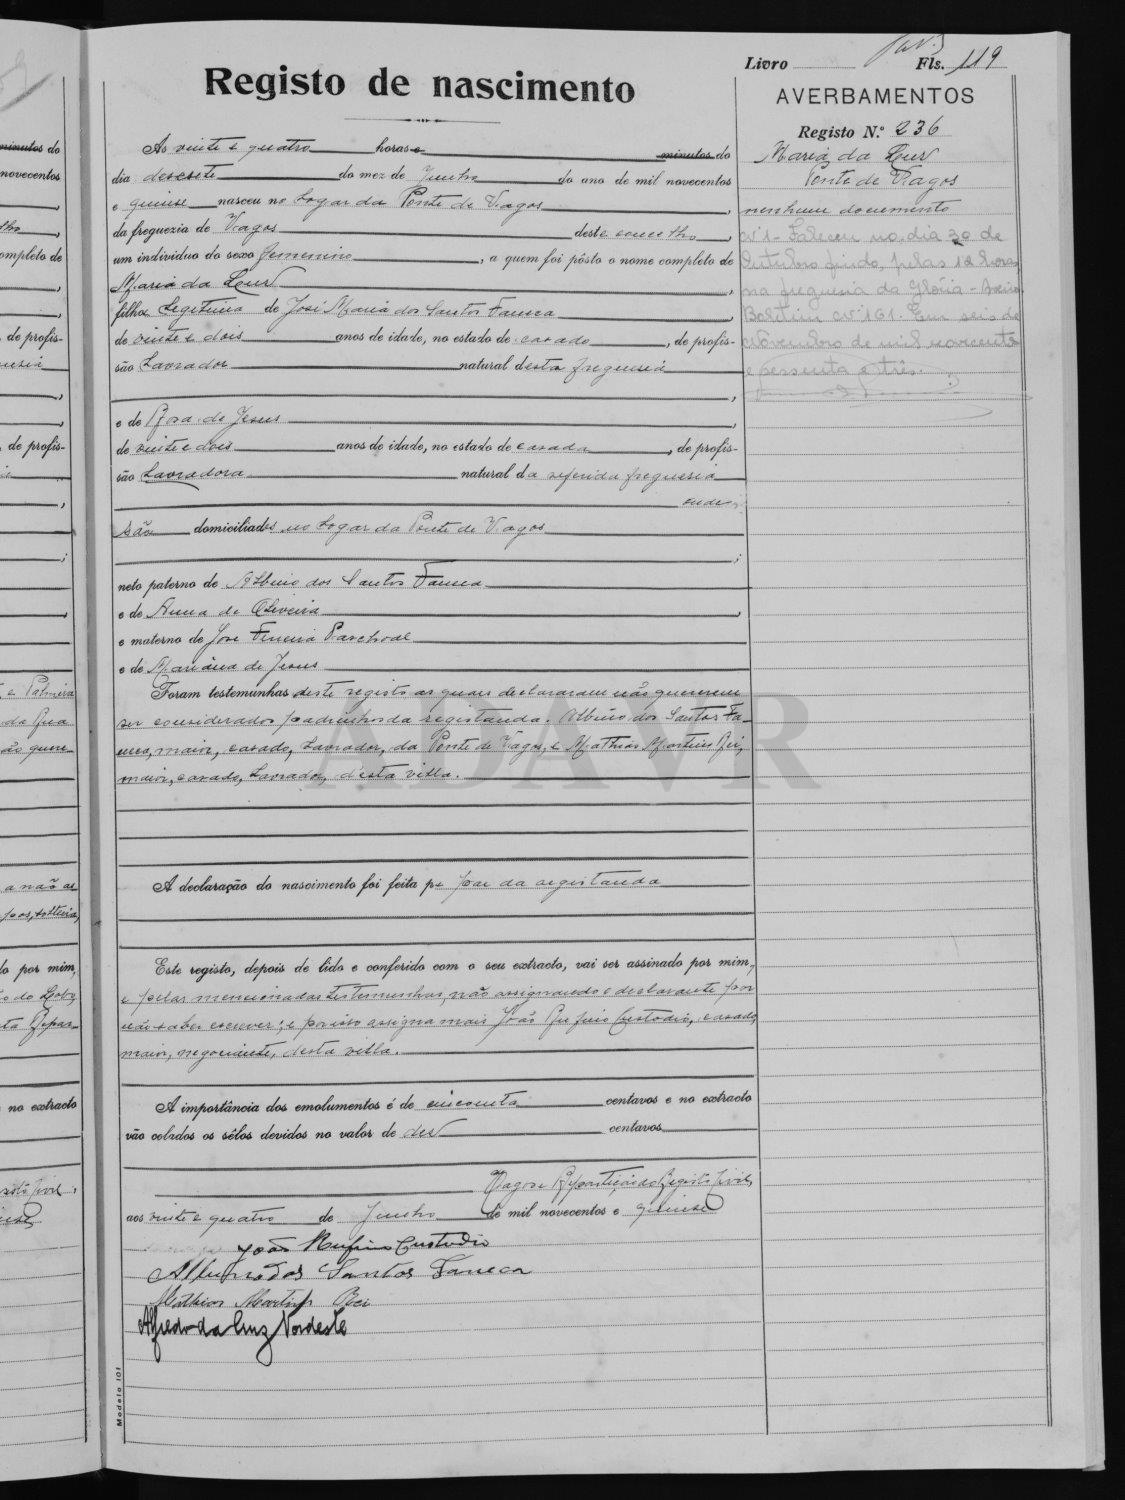 Registo de nascimento
Livro Fls. 119
AVERBAMENTOS
Registo N.º 236
Maria da Luz
Ponte de Vagos
nenhum documento
N.º 1 - Faleceu no dia 30 de
Outubro findo, pelas 12 horas
na freguesia da Glória - Aveiro.
Boletim N.º 161. Em seis de
Novembro de mil novecentos
e sessenta e três.
Ás vinte e quatro horas e minutos do
dia desesete do mez de Junho do ano de mil novecentos
e quinse nasceu no Logar da Ponte de Vagos,
da freguezia de Vagos deste concelho,
um individuo do sexo femenino, a quem foi pôsto o nome completo de
Maria da Luz,
filha Legitima de José Maria dos Santos Faneca,
de vinte e dois anos de idade, no estado de casado, de profis-
são Lavrador natural desta freguesia
,
e de Rosa de Jesus,
de vinte e dois anos de idade, no estado de casada, de profis-
são Lavradora natural da referida freguesia
onde
são domiciliados no Logar da Ponte de Vagos
;
neto paterno de Albino dos Santos Faneca
e de Anna de Oliveira,
e materno de José Ferreira Paschoal
e de Mariana de Jesus
Foram testemunhas deste registo as quaes declararam não quererem
ser considerados padrinhos da registanda. Albino dos Santos Fa-
neca, maior, casado, Lavrador, da Ponte de Vagos, e Mathias Martins Rei,
maior, casado, Lavrador, d'esta villa.
ADAVR
A declaração do nascimento foi feita pe pae da registanda
Este registo, depois de lido e conferido com o seu extracto, vai ser assinado por mim,
e pelas mencionadas testemunhas, não assignando o declarante por
não saber escrever; e por isso assigna mais João Rufino Custodio, casado,
maior, negociante, desta villa.
A importância dos emolumentos é de cincoenta centavos e no extracto
vão colados os sêlos devidos no valor de dez centavos
Vagos e Repartição do Registo Civil,
aos vinte e quatro de Junho de mil novecentos e quinse
João Rufino Custodio
Albino dos Santos Faneca
Mathias Martins Rei
Alfredo da Cruz Nordeste
Modelo 101
minutos do
novecentos
,
lho,
ompleto de
,
,
, de profis-
,
,
, de profis-
,
;
,
e Palmira
da Rua
não quere-
a não as
do por mim,
no extracto